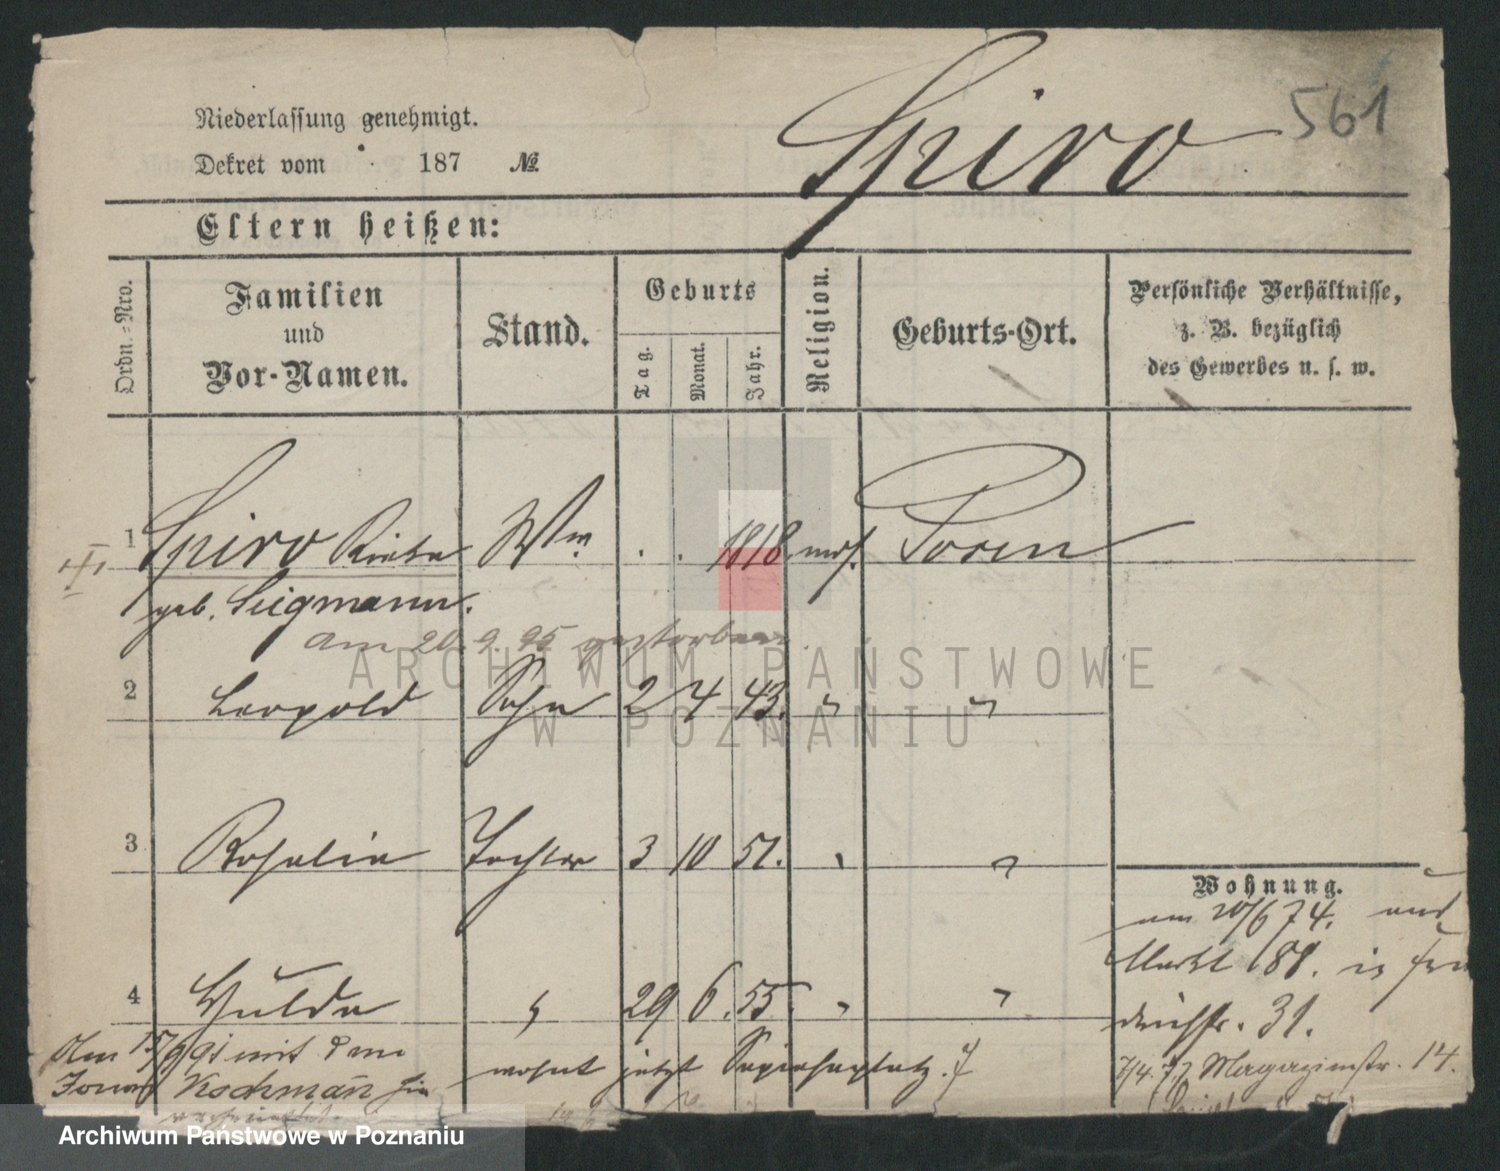 561
Spiro
Niederlassung genehmigt.
Dekret vom 187 №.
Eltern heißen:
Ordn.-Nro.
Familien
und
Vor-Namen.
Stand.
Geburts
Tag.
Monat.
Jahr.
Religion.
Geburts-Ort.
Persönliche Verhältnisse,
z. B. bezüglich
des Gewerbes u. s. w.
1 Spiro Wwe . . 1818 mos. Posen
geb. Siegmann.
am 20. 9. 95 gestorben
2 Leopold Sohn 2 4 43. " "
3 Rosalie Tochter 3 10 51. " "
4 Hulda " 29 6. 55. " "
Wohnung.
am 20/6 74.
Markt 88. in Frie
drichstr. 31.
7/4. 77 Magazinstr. 14.
Am 15/9 91 mit dem
Kochmann hie
wohnt jetzt Sapiehaplatz. 7
ARCHIWUM PAŃSTWOWE
W POZNANIU
Archiwum Państwowe w Poznaniu